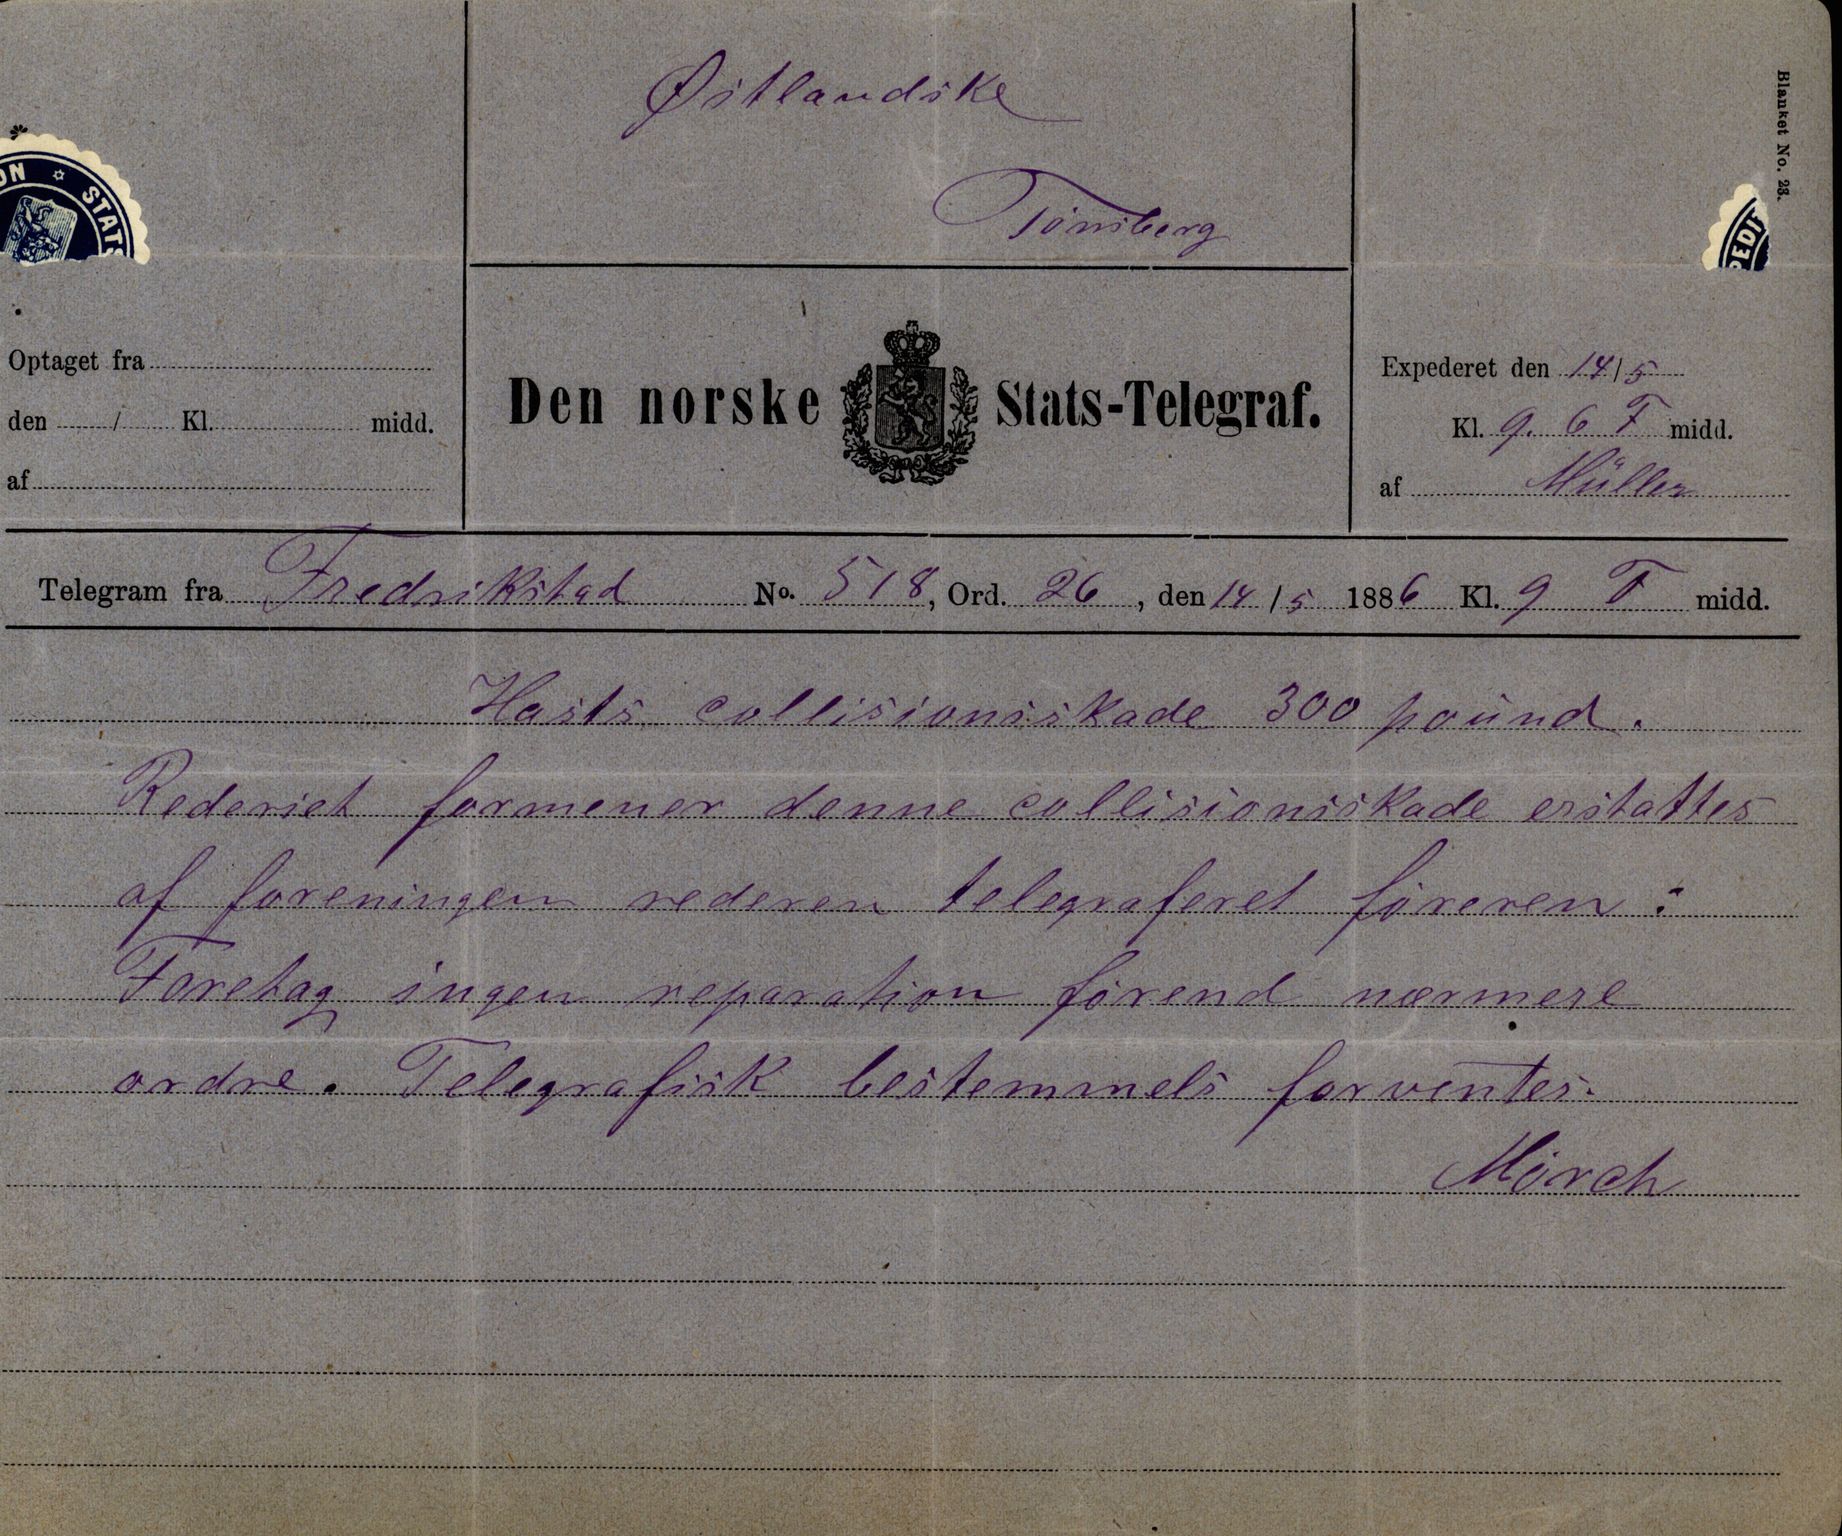 Østlandske
Tönsberg
Blanket No. 23.
ON ✡ STATS
PEDIT
Optaget fra
den / Kl. midd.
af
Den norske Stats-Telegraf.
Expederet den 14/5
Kl. 9. 6 F midd.
af Müller
Telegram fra Fredrikstad No. 518, Ord. 26, den 14/5 1886 Kl. 9 F midd.
Hasts collisionsskade 300 pound.
Rederiet formener denne collisionsskade erstattes
af foreningen rederen telegraferet föreren :
Foretag ingen reparation förend nærmere
ordre. Telegrafisk bestemmels forventes.
Mörch